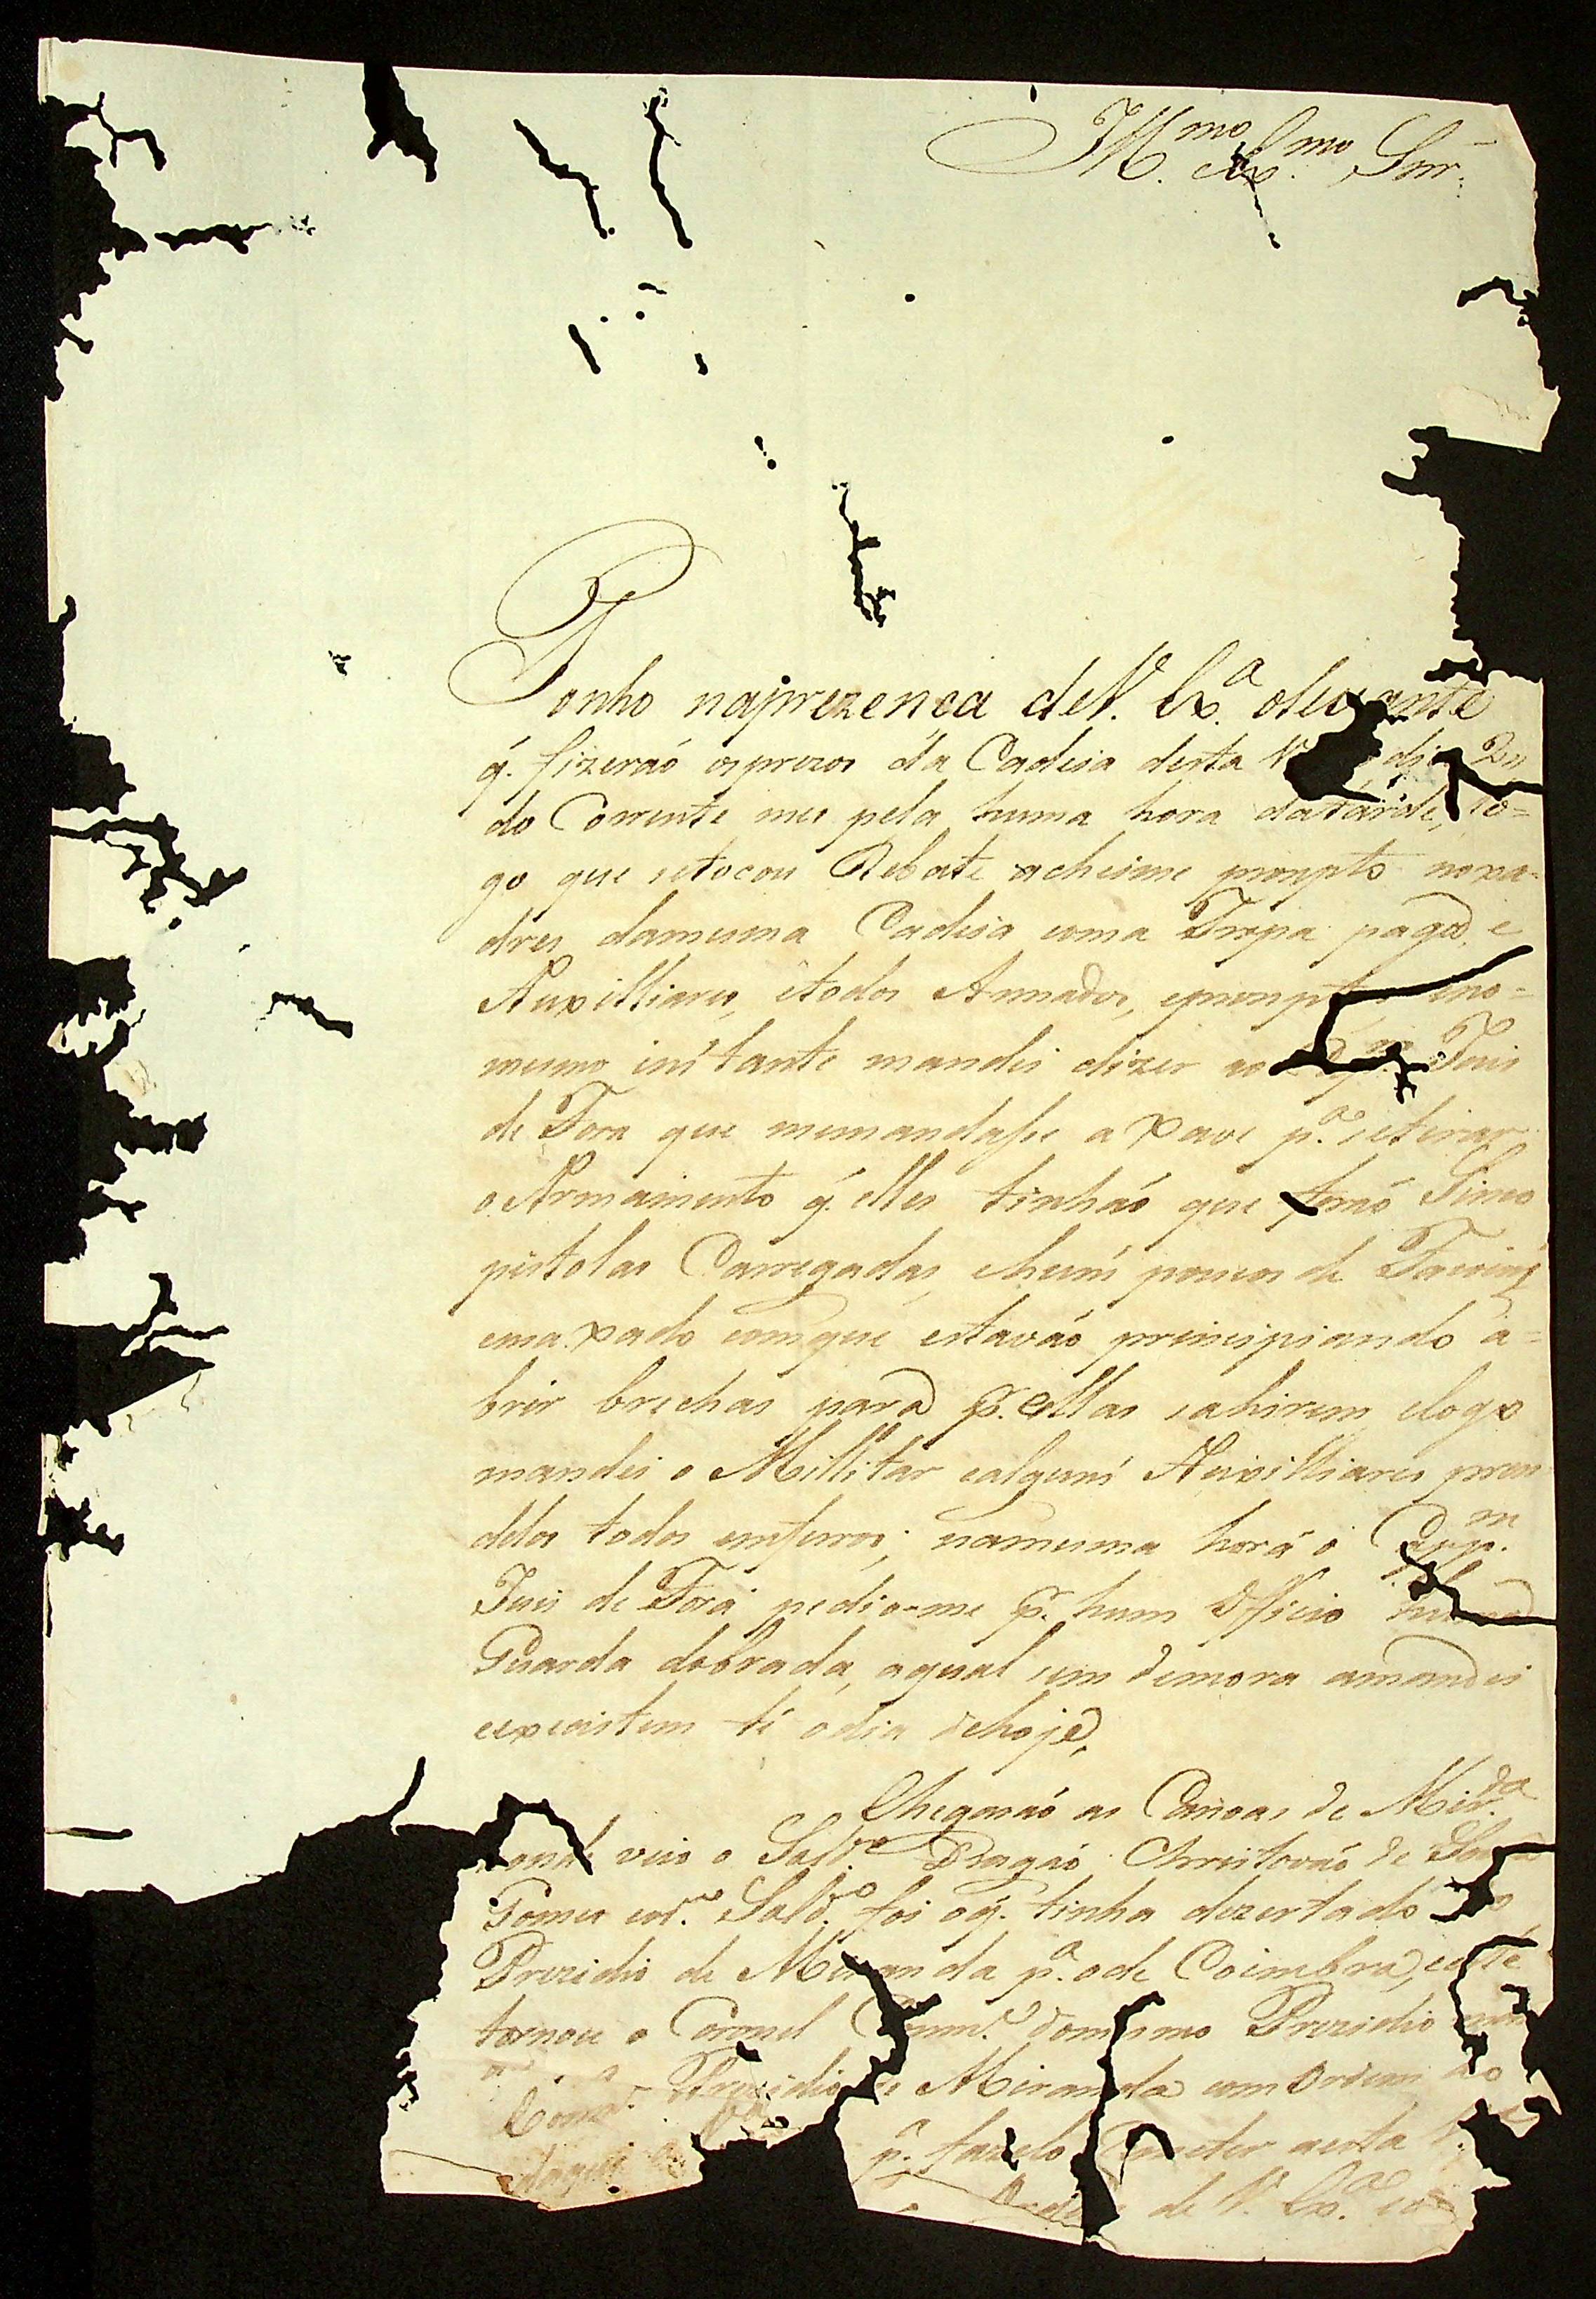 Ill.mo Ex.mo Snr.
Ponho naprezença deV. Ex.a olevante
q. fizeraó ospresos da Cadeia desta V dia
do Corrente mes pela huma hora datarde, lo=
go que setocou Rebate acheime prompto noxa-
dres damesma Cadeia coma Tropa paga, e
Auxilliares, etodos Armados, eprompto eno=
mesmo instante mandei dizer ao Juis
de Fora que memandasse a xave p.a setirar
o Armamento q. elles tinhaó que foraó Sinco
pistolas Carregadas, ehuns poucos de
emaxado comque estavaó principiando a=
brir brechas para p. ellas sahirem elogo
mandei o Millitar ealguns Auxilliares pren
delos todos emferros; namesma hora o Capp.m
Juis de Fora pedio-me p. hum Officio
Guarda dobrada, aqual sem demora amandei
eexcistem té odia dehoje,
Chegaraó as Canoas de Mir.da
veio o Sold.o Dragaó Christovaó de
Gomes Sold.o foi oq. tinha dezertado
Prezidio de Miranda p.a ode Coimbra, este
tornou o Coronel Comm.e domesmo Prezidio
Prezidio de Miranda com Ordem ao
p.a fazelo Remeter aesta V.
daqui
de V. Ex.a